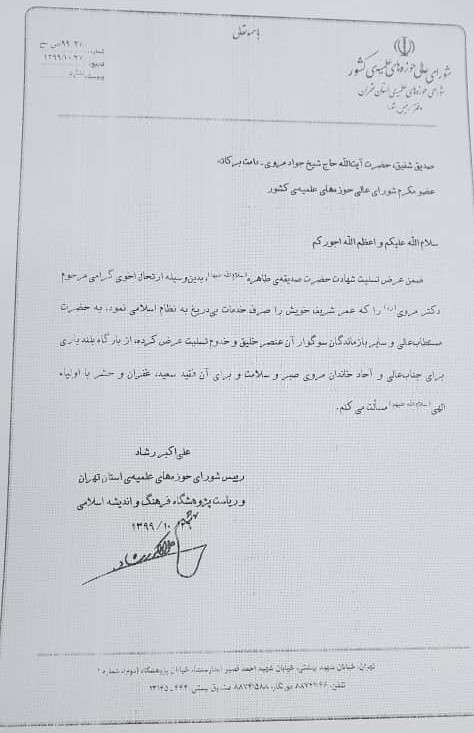 باسمه‌تعالی
شورای عالی حوزه‌های علمیه‌ی کشور
شورای حوزه‌های علمیه‌ی استان تهران
دفتر رئیس شورا
شماره:
تاریخ: ۱۳۹۹/۱۰/۲۷
پیوست: ندارد
صدیق شفیق، حضرت آیت‌الله حاج شیخ جواد مروی ـ دامت برکاته
عضو مکرم شورای عالی حوزه‌های علمیه‌ی کشور
سلام الله علیکم و اعظم الله اجورکم
ضمن عرض تسلیت شهادت حضرت صدیقه‌ی طاهره (سلام‌الله علیها)، بدین‌وسیله ارتحال اخوی گرامی مرحوم
دکتر مروی (ره) را که عمر شریف خویش را صرف خدمات بی‌دریغ به نظام اسلامی نمود، به حضرت
مستطاب‌عالی و سایر بازماندگان سوگوار آن عنصر خلیق و خدوم تسلیت عرض کرده، از بارگاه بلند باری
برای جناب‌عالی و آحاد خاندان مروی صبر و سلامت و برای آن فقید سعید، غفران و حشر با اولیاء
الهی (سلام‌الله علیهم) مسألت می‌کنم.
علی‌اکبر رشاد
رییس شورای حوزه‌های علمیه‌ی استان تهران
و ریاست پژوهشگاه فرهنگ و اندیشه اسلامی
۱۳۹۹/۱۰/
تهران، خیابان شهید بهشتی، خیابان شهید احمد قصیر (بخارست)، خیابان پژوهشگاه (دوم)، شماره ۲
تلفن: دورنگار: ۸۸۷۴۱۵۸۸ صندوق پستی: ۴۴۴-۱۳۱۴۵